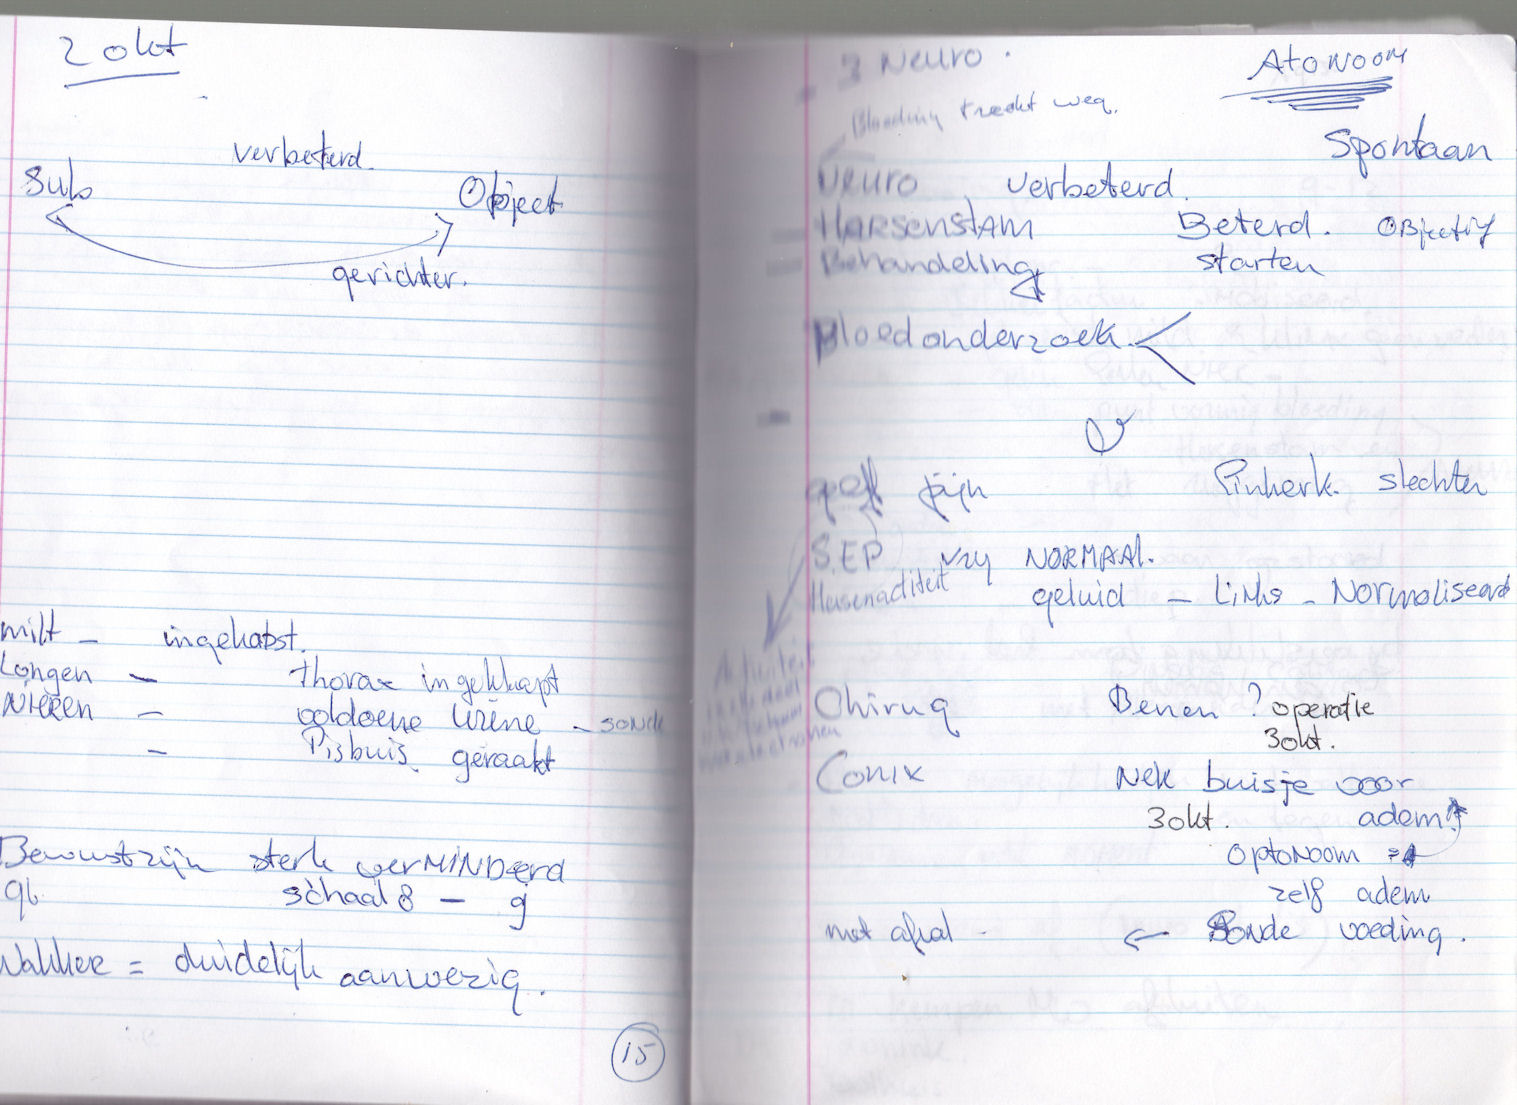 2 okt
verbeterd.
Sub Object
gerichter.
milt - ingekapst.
Longen - thorax ingeklapt
Nieren - voldoene Urène - sonde
- Pisbuis geraakt
Bewustzijn sterk verMINDerd
schaal 8 - 9
Wakker = duidelijk aanwezig.
15
3 Neuro.
Atonoom
Bloeding trekt weg.
Spontaan
Neuro verbeterd.
HARSENSTAM Beterd. OBjectif
Behandeling starten
Bloedonderzoek
pijn slechter
S.EP. vrij NORMAAl.
Hersenactiteit geluid - Links - Normaliseerd
Activiteit
Chirug Benen ? operatie
3okt.
Conix Nek buisje voor
3okt. adem
optonoom =
zelf adem
met afval - ← Sonde voeding.